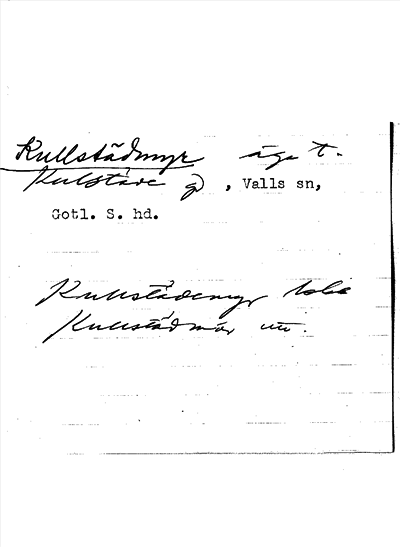 Kullstädmyr äga t.
Kulstäde gd, Valls sn,
Gotl. S. hd.
Kullstädemyr
Kullstädmör